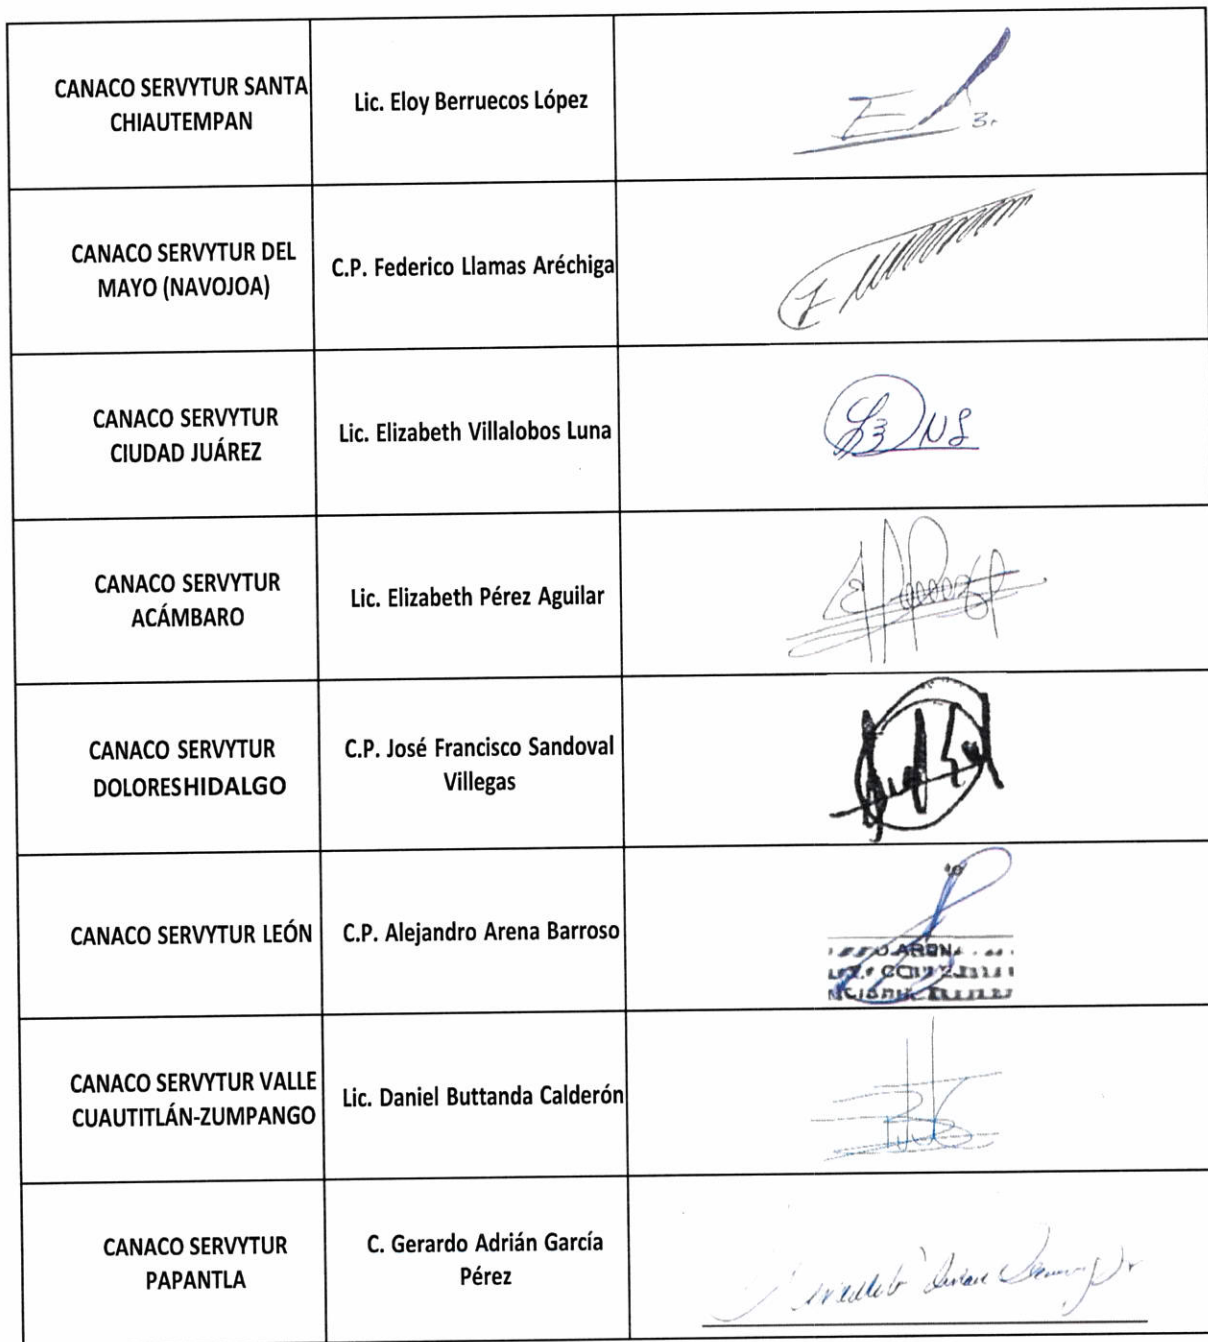 CANACO SERVYTUR SANTA
CHIAUTEMPAN
Lic. Eloy Berruecos López
CANACO SERVYTUR DEL
MAYO (NAVOJOA)
C.P. Federico Llamas Aréchiga
CANACO SERVYTUR
CIUDAD JUÁREZ
Lic. Elizabeth Villalobos Luna
CANACO SERVYTUR
ACÁMBARO
Lic. Elizabeth Pérez Aguilar
CANACO SERVYTUR
DOLORESHIDALGO
C.P. José Francisco Sandoval
Villegas
CANACO SERVYTUR LEÓN
C.P. Alejandro Arena Barroso
CANACO SERVYTUR VALLE
CUAUTITLÁN-ZUMPANGO
Lic. Daniel Buttanda Calderón
CANACO SERVYTUR
PAPANTLA
C. Gerardo Adrián García
Pérez